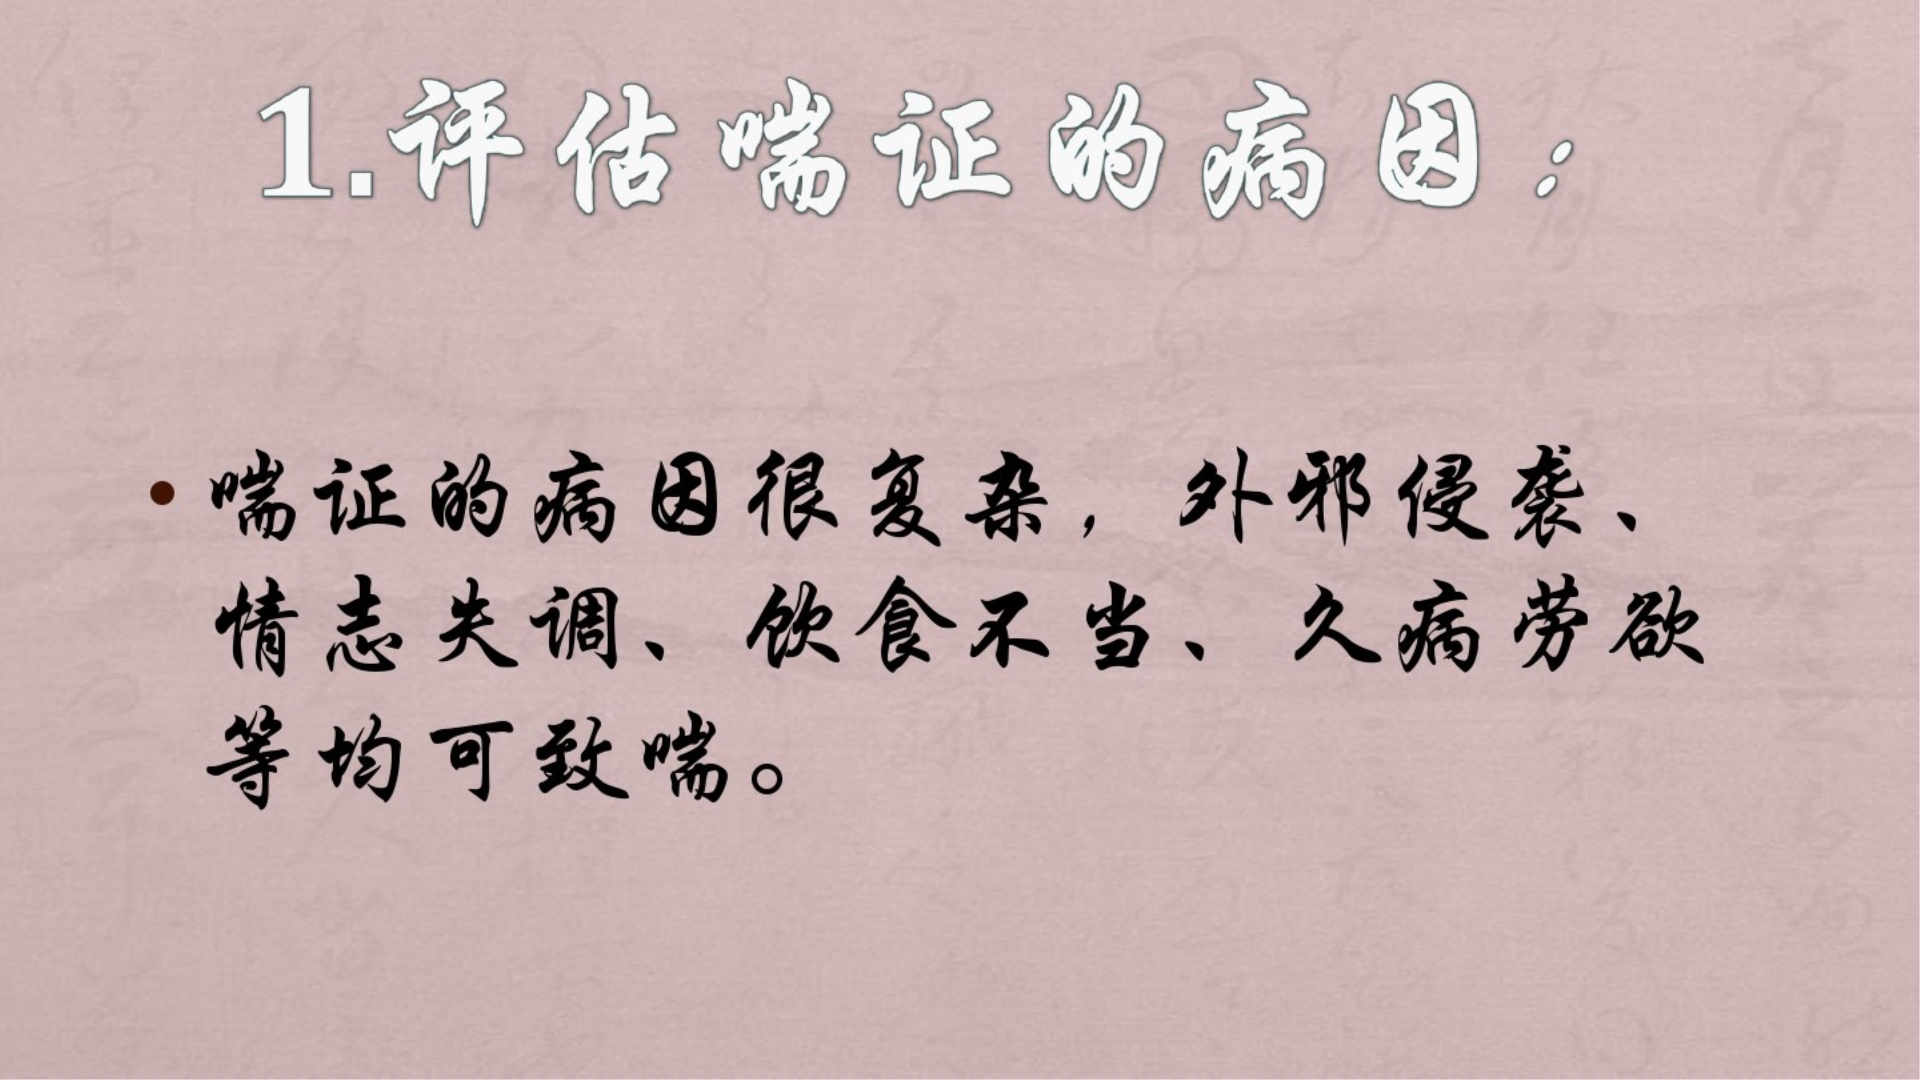 1.评估喘证的病因：
• 喘证的病因很复杂，外邪侵袭、
情志失调、饮食不当、久病劳欲
等均可致喘。